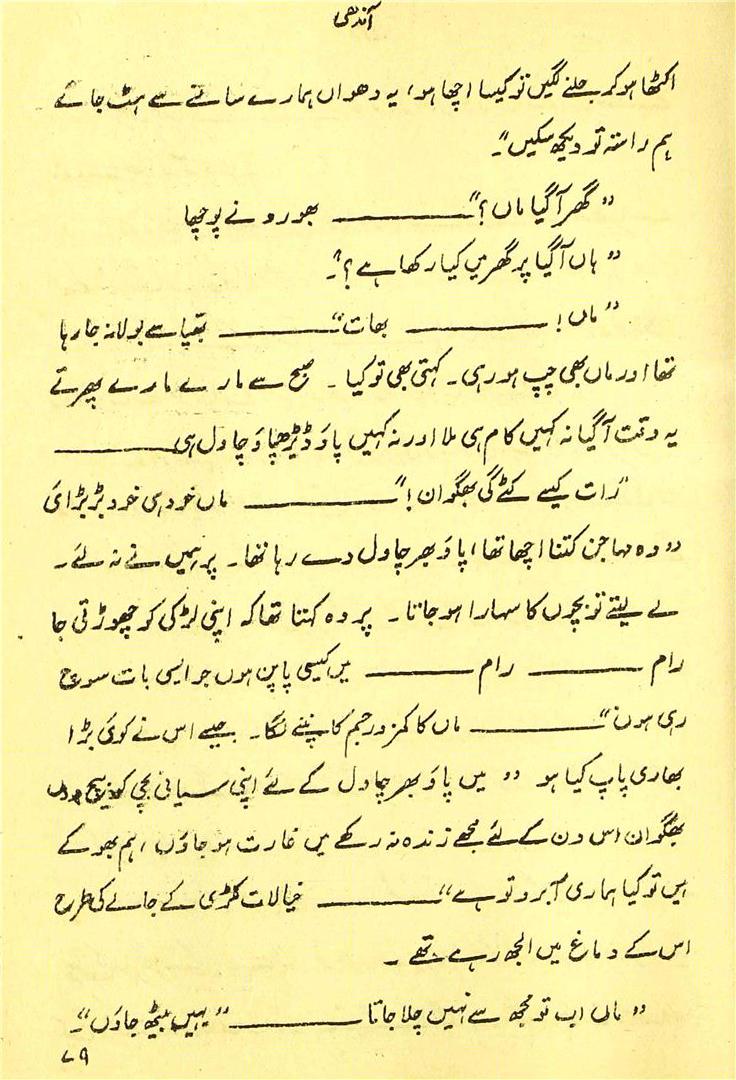 آندھی
اکٹھا ہوکر جلنے لگیں تو کیسا اچھا ہو، یہ دھواں ہمارے سامنے سے ہٹ جائے
ہم راستہ تو دیکھ سکیں"۔
"گھر آگیا ماں؟" ــــــــــ بھورو نے پوچھا
"ہاں آگیا پر گھر میں کیا رکھا ہے؟"۔
"ماں! ــــــــــ بھات" ــــــــــ بقیا سے بولا نہ جا رہا
تھا اور ماں بھی چپ ہو رہی۔ کہتی بھی تو کیا۔ صبح سے مارے مارے پھرتے
یہ وقت آگیا نہ کہیں کام ہی ملا اور نہ کہیں پاؤ ڈیڑھ پاؤ چاول ہی ــــــــــ
"رات کیسے کٹے گی بھگوان!" ــــــــــ ماں خود ہی خود بڑبڑائی
"وہ مہاجن کتنا اچھا تھا، پاؤ بھر چاول دے رہا تھا۔ پر ہمیں نے نہ لئے۔
لے لیتے تو بچوں کا سہارا ہو جاتا۔ پر وہ کہتا تھا کہ اپنی لڑکی کو چھوڑتی جا
رام ــــــــــ رام ــــــــــ میں کیسی پاپن ہوں جو ایسی بات سوچ
رہی ہوں" ــــــــــ ماں کا کمزور جسم کانپنے لگا۔ جیسے اس نے کوئی بڑا
بھاری پاپ کیا ہو "میں پاؤ بھر چاول کے لئے اپنی سیانی بچی کو بیچ دوں
بھگوان اس دن کے لئے مجھے زندہ نہ رکھے میں غارت ہو جاؤں، ہم بھوکے
ہیں تو کیا ہماری آبرو تو ہے" ــــــــــ خیالات مکڑی کے جالے کی طرح
اس کے دماغ میں الجھ رہے تھے۔
"ماں اب تو مجھ سے نہیں چلا جاتا ــــــــــ "یہیں بیٹھ جاؤں"۔
۷۹